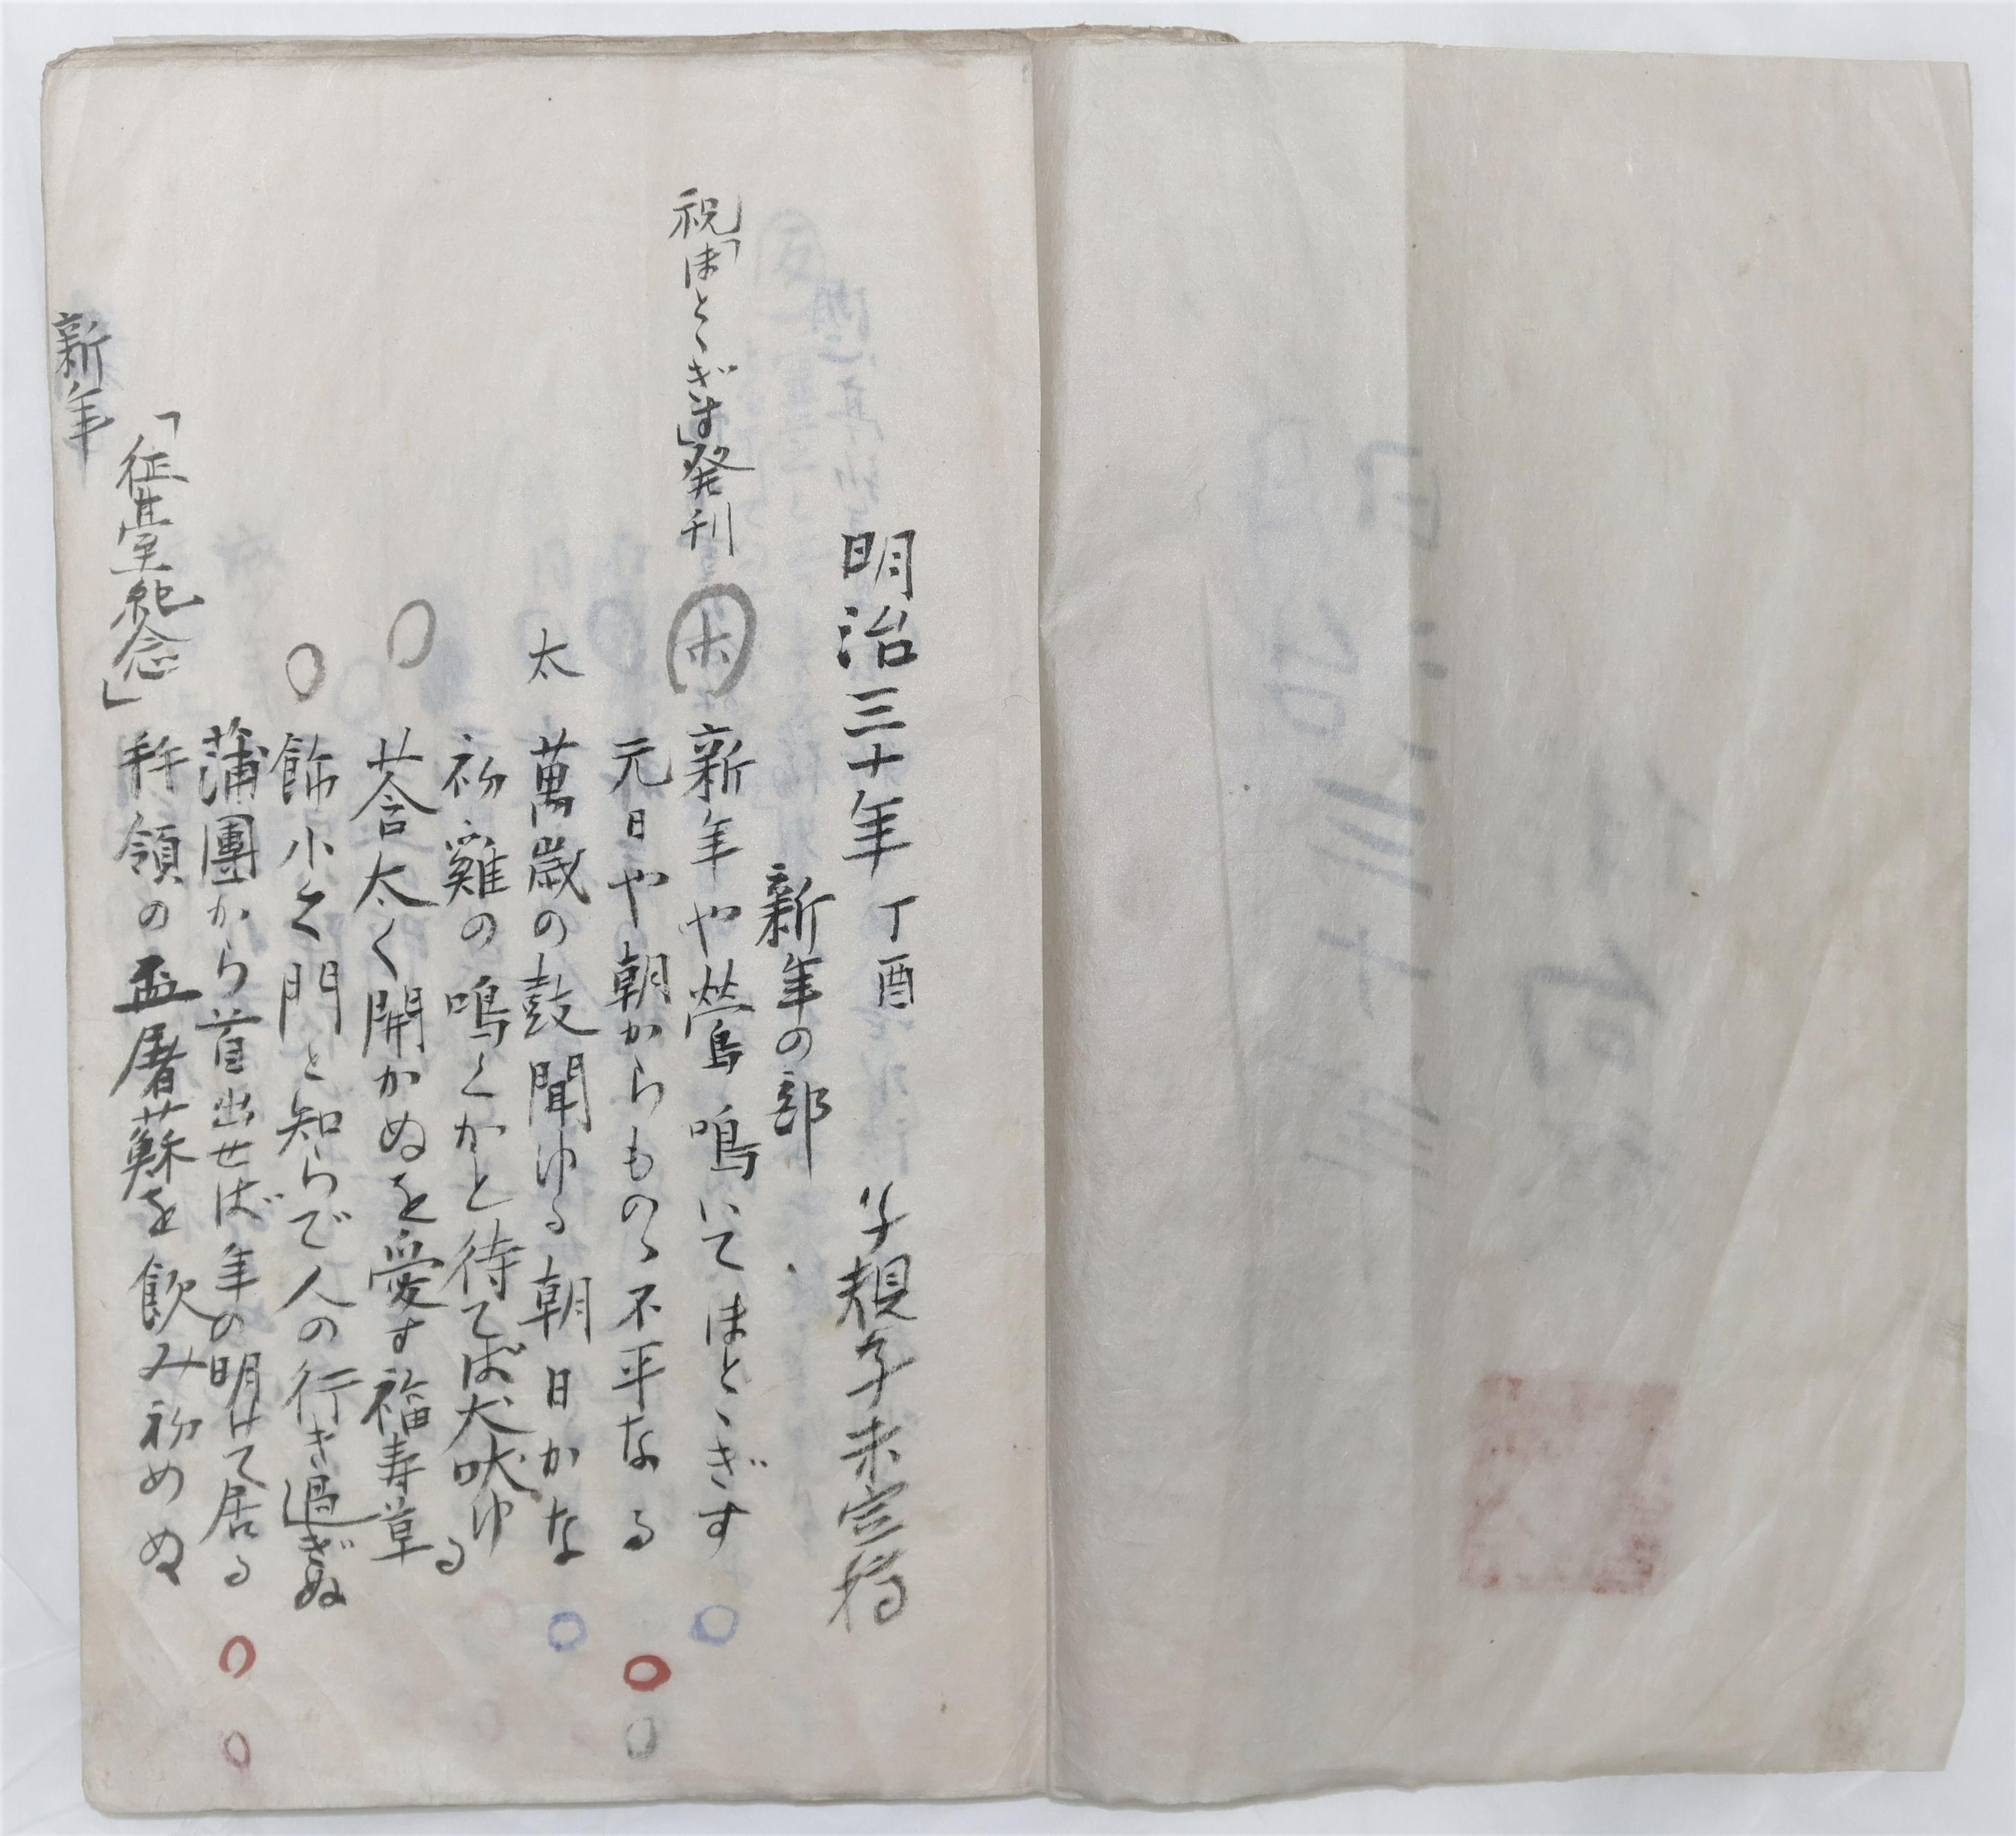 明治三十年丁酉　子規子未定稿
新年の部
祝「ほとゝぎす」発刊　ホ　新年や鶯鳴いてほとゝぎす
元日や朝からものゝ不平なる
太　萬歳の鼓聞ゆる朝日かな
初雞の鳴くかと待てば犬吠ゆる
莟太く開かぬを愛す福寿草
飾小く門と知らで人の行き過ぎぬ
蒲團から首出せば年の明けて居る
「征臺紀念」　拝領の盃屠蘇を飲み初めぬ
新年